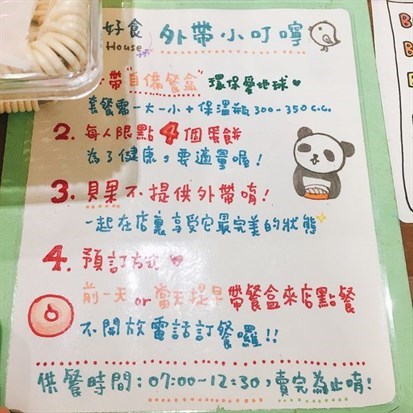 好食 外帶小叮嚀
House
帶"自備餐盒" 環保愛地球♥
套餐需一大一小+保溫瓶300-350c.c.
2. 每人限點4個蛋餅
為了健康,要適量喔!
3. 貝果不提供外帶唷!
一起在店裏享受它最完美的狀態
4. 預訂方式♥
前一天or當天提早帶餐盒來店點餐
不開放電話訂餐囉!!
供餐時間:07:00-12:30,賣完為止唷!